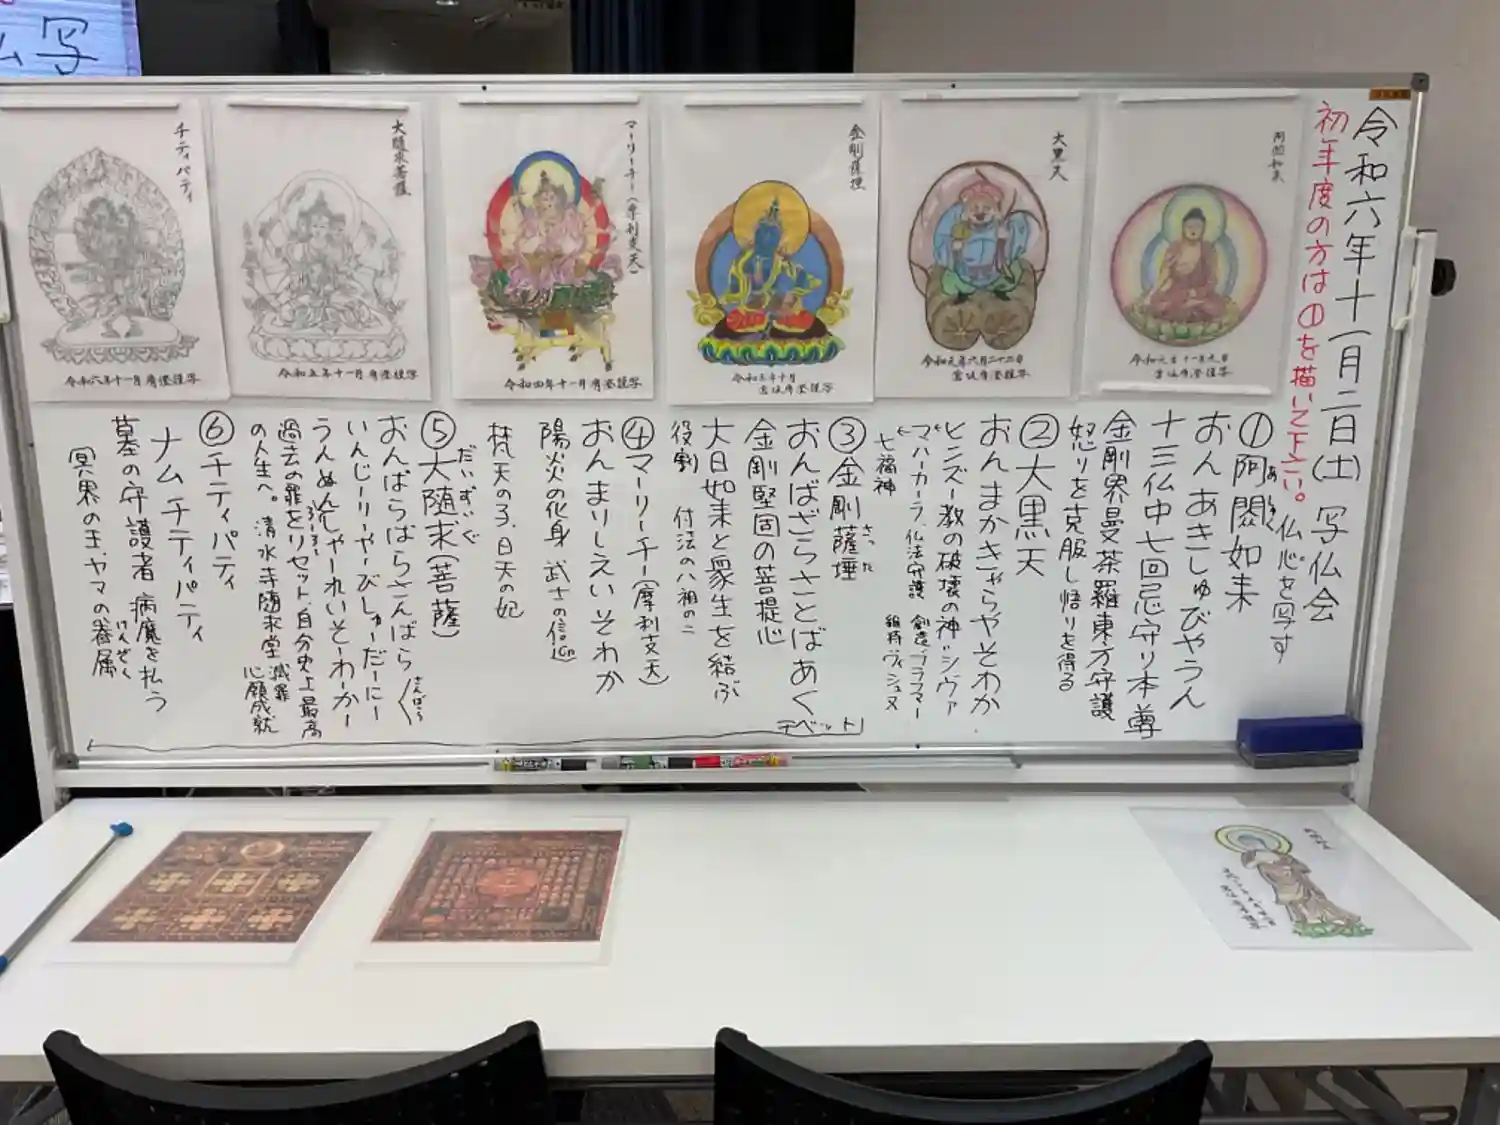 令和六年十一月二日(土) 写仏会
初年度の方は①を描いて下さい。
仏心を写す
①阿閦如来
あしゅく
おん あきしゅびやうん
十三仏中七回忌守り本尊
金剛界曼荼羅東方守護
怒りを克服し悟りを得る
②大黒天
おんまかきゃらやそわか
ヒンズー教の破壊の神=シヴァ
マハーカーラ、仏法守護
創造ブラフマー
維持ヴィシュヌ
七福神
③金剛薩埵
さった
おんばざらさとばあく
金剛堅固の菩提心
大日如来と衆生を結ぶ
役割 付法の八祖の二
チベット
④マーリーチー(摩利支天)
おんまりしえいそわか
陽炎の化身 武士の信心
梵天の子、日天の妃
⑤大随求(菩薩)
だいずいぐ
おんばらばらさんばら
さんばら
いんじーりーやーびしゅーだーにー
うんぬんろーろーしゃーれいそーわーかー
過去の罪をリセット、自分史上最高
の人生へ。清水寺随求堂 滅罪
心願成就
⑥チティパティ
ナム チティパティ
墓の守護者 病魔を払う
冥界の王、ヤマの眷属
けんぞく
阿閦如来
令和元年十一月
大黒天
令和元年六月二十二日
金剛薩埵
令和三年十月
マーリーチー(摩利支天)
令和四年十一月
謹写
大随求菩薩
令和五年十一月
謹写
チティパティ
令和六年十一月
謹写
写